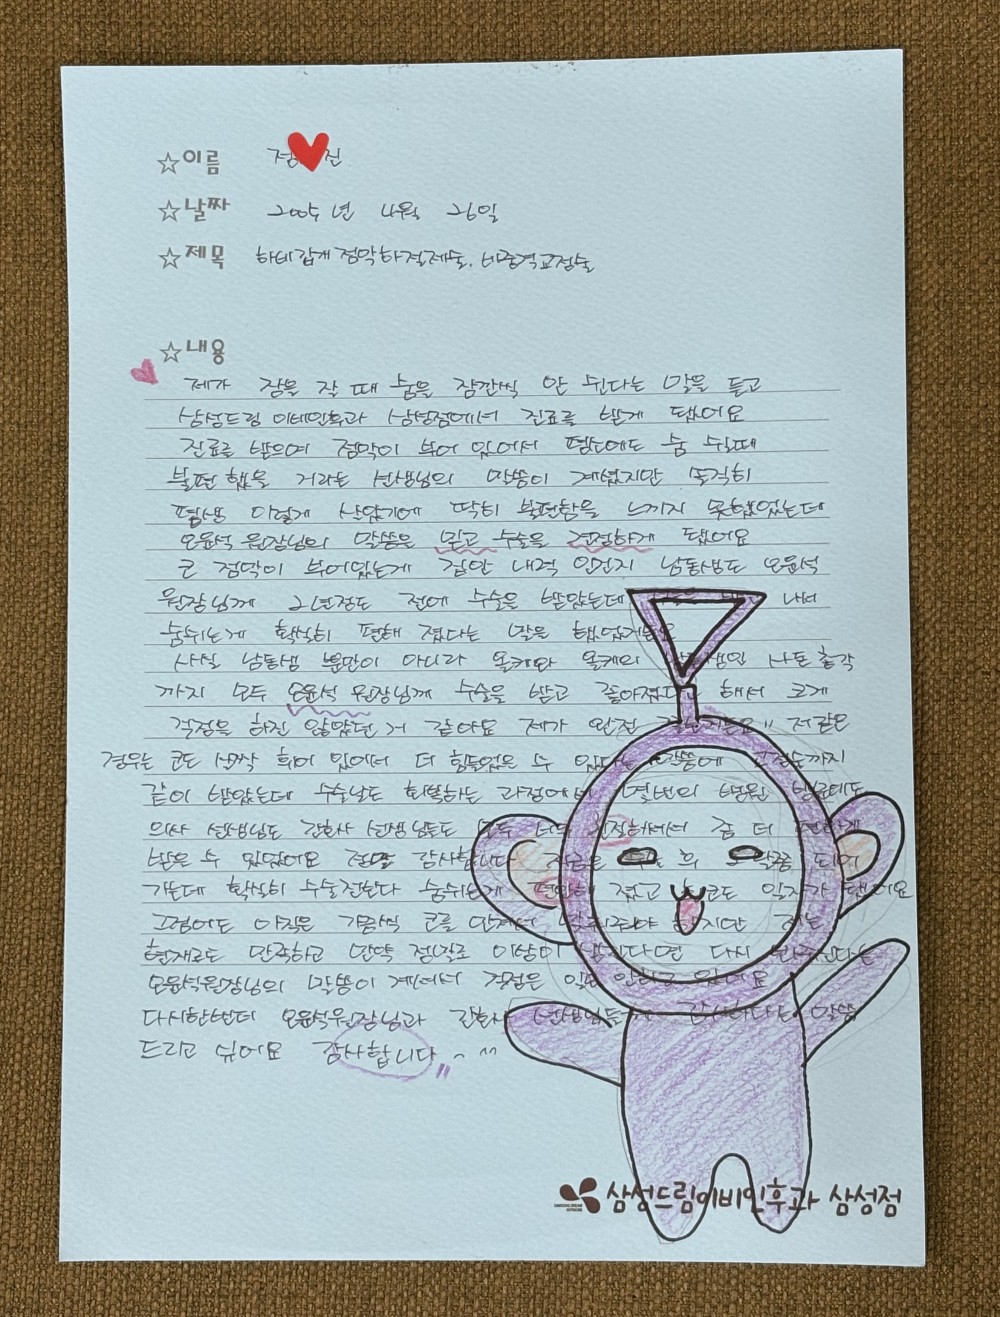 ☆이름 정 진
☆날짜 2005년 4월 26일
☆제목 하비갑개점막하절제술, 비중격교정술
☆내용
제가 잠을 잘 때 숨을 잠깐씩 안 쉰다는 말을 듣고
삼성드림 이비인후과 삼성점에서 진료를 받게 됐어요
진료를 받으며 점막이 부어 있어서 평소에도 숨 쉴때
불편했을 거라는 선생님의 말씀이 계셨지만 솔직히
평생 이렇게 살았기에 딱히 불편함을 느끼지 못했었는데
오윤석 원장님의 말씀을 믿고 수술을 결정하게 됐어요
큰 점막이 부어있는게 집안 내력 인건지 남동생도 오윤석
원장님께 2년정도 전에 수술을 받았는데 내내
숨쉬는게 확실히 편해 졌다는 말을 했었거든요
사실 남동생 뿐만이 아니라 올케와 올케의 사돈총각
까지 모두 오윤석 원장님께 수술을 받고 좋아졌다고 해서 크게
걱정을 하진 않았던 거 같아요 제가 완전 저같은
경우는 코도 살짝 휘어 있어서 더 힘들었을 수 있다는 말씀에 까지
같이 받았는데 수술날도 회복하는 과정에 병원
의사 선생님도 간호사 선생님들도 모두 너무 친절하셔서 좀 더 편하게
받을 수 있었어요 정말 감사합니다 지금은 수술 후 되어
가는데 확실히 수술전보다 숨쉬는게 편안해 졌고 코도 일자가 됐어요
그럼에도 아직은 가끔씩 코를 하지만 저는
현재로도 만족하고 만약 정말로 이상이 다면 다시 는
오윤석원장님의 말씀이 계셔서 걱정은 안하고 있어요
다시한번더 오윤석원장님과 간호사 선생님들께 감사하다는 말씀
드리고 싶어요 감사합니다~ ^^
삼성드림이비인후과 삼성점